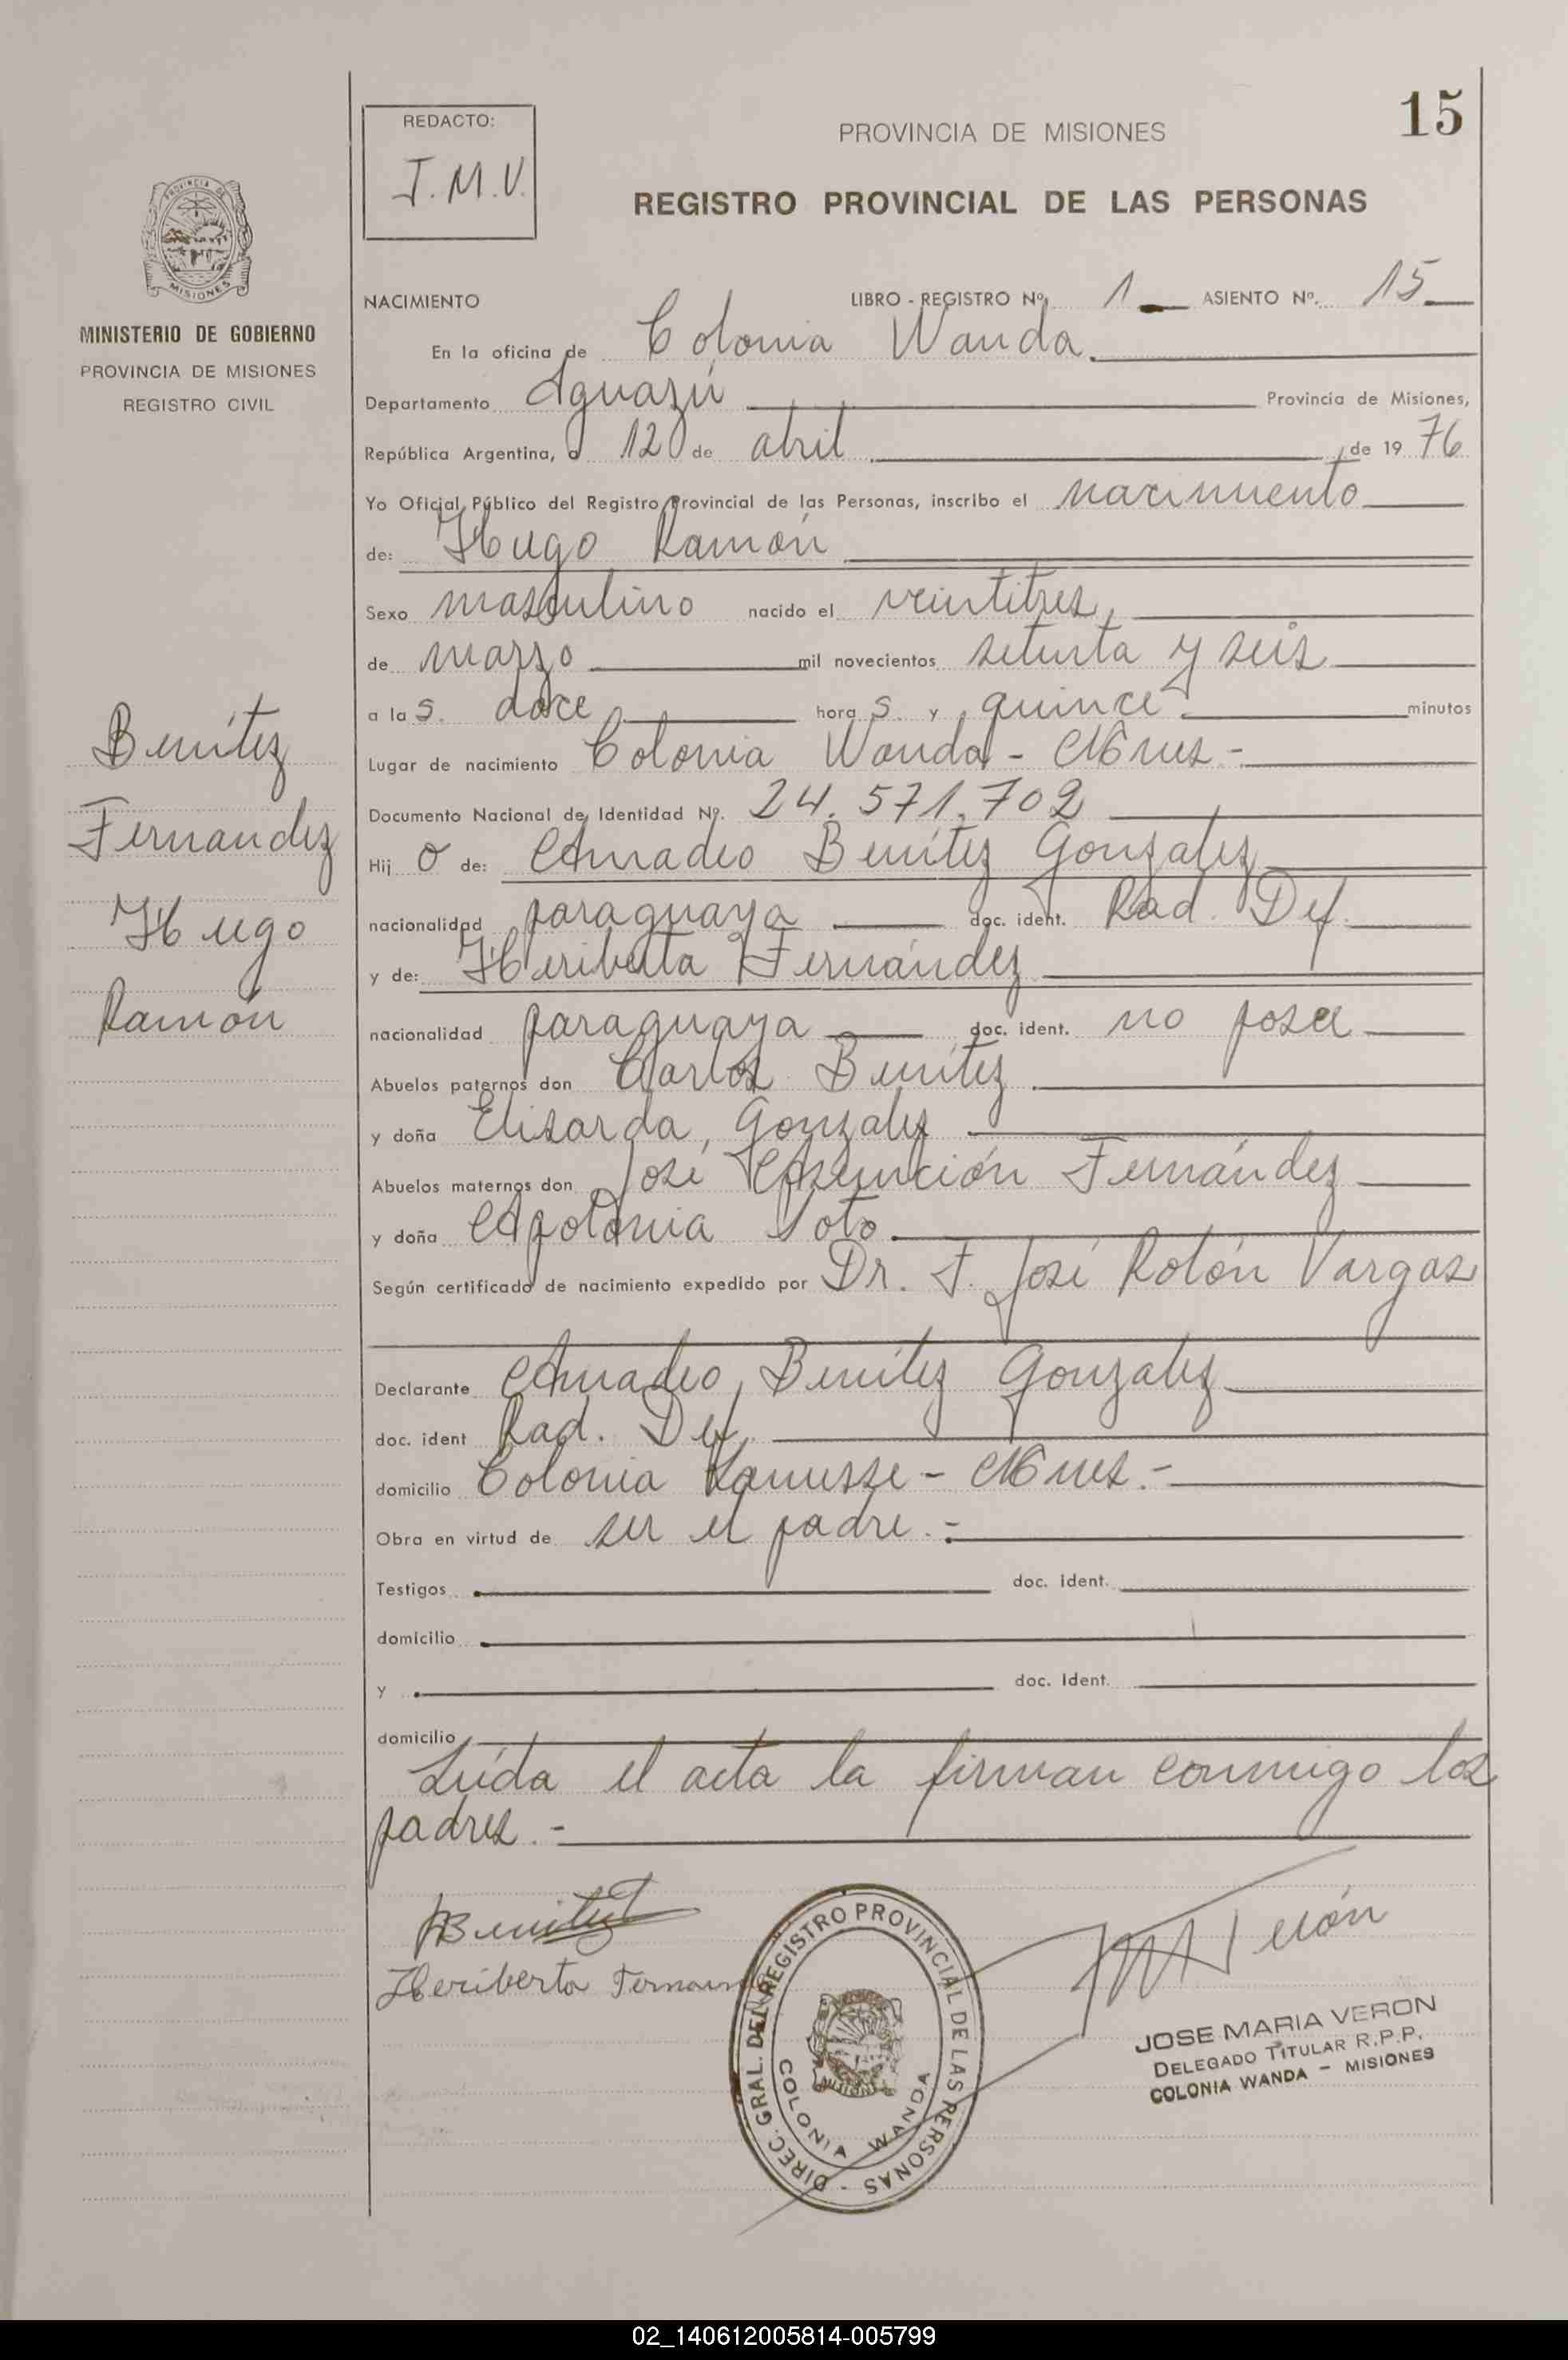 REDACTO:
J.M.V.
PROVINCIA DE MISIONES
15
REGISTRO PROVINCIAL DE LAS PERSONAS
PROVINCIA DE
MISIONES
MINISTERIO DE GOBIERNO
PROVINCIA DE MISIONES
REGISTRO CIVIL
Benítez
Fernandez
Hugo
Ramón
NACIMIENTO LIBRO - REGISTRO Nº 1 ASIENTO Nº. 15
En la oficina de Colonia Wanda.
Departamento Iguazú Provincia de Misiones,
República Argentina, a 12 de abril de 1976
Yo Oficial Público del Registro Provincial de las Personas, inscribo el nacimiento
de: Hugo Ramón
Sexo masculino nacido el veintitres,
de marzo mil novecientos setenta y seis
a las doce horas y quince minutos
Lugar de nacimiento Colonia Wanda - Mnes -
Documento Nacional de Identidad Nº. 24.571.702
Hijo de: Amadeo Benítez Gonzalez
nacionalidad paraguaya doc. ident. Rad. Def.
y de: Heriberta Fernández
nacionalidad paraguaya doc. ident. no posee
Abuelos paternos don Carlos Benítez
y doña Elisarda Gonzalez
Abuelos maternos don José Asunción Fernández
y doña Apolonia Soto
Según certificado de nacimiento expedido por Dr. F. José Rolón Vargas
Declarante Amadeo Benítez Gonzalez
doc. ident Rad. Def.
domicilio Colonia Lanusse - Mnes. -
Obra en virtud de ser el padre. -
Testigos doc. ident.
domicilio
y doc. Ident.
domicilio
Leída el acta la firman conmigo los
padres. -
ABenitez
Heriberta
DIREC. GRAL. DEL REGISTRO PROVINCIAL DE LAS PERSONAS -
MISIONES
COLONIA WANDA
JOSE MARIA VERON
DELEGADO TITULAR R.P.P.
COLONIA WANDA - MISIONES
02_140612005814-005799